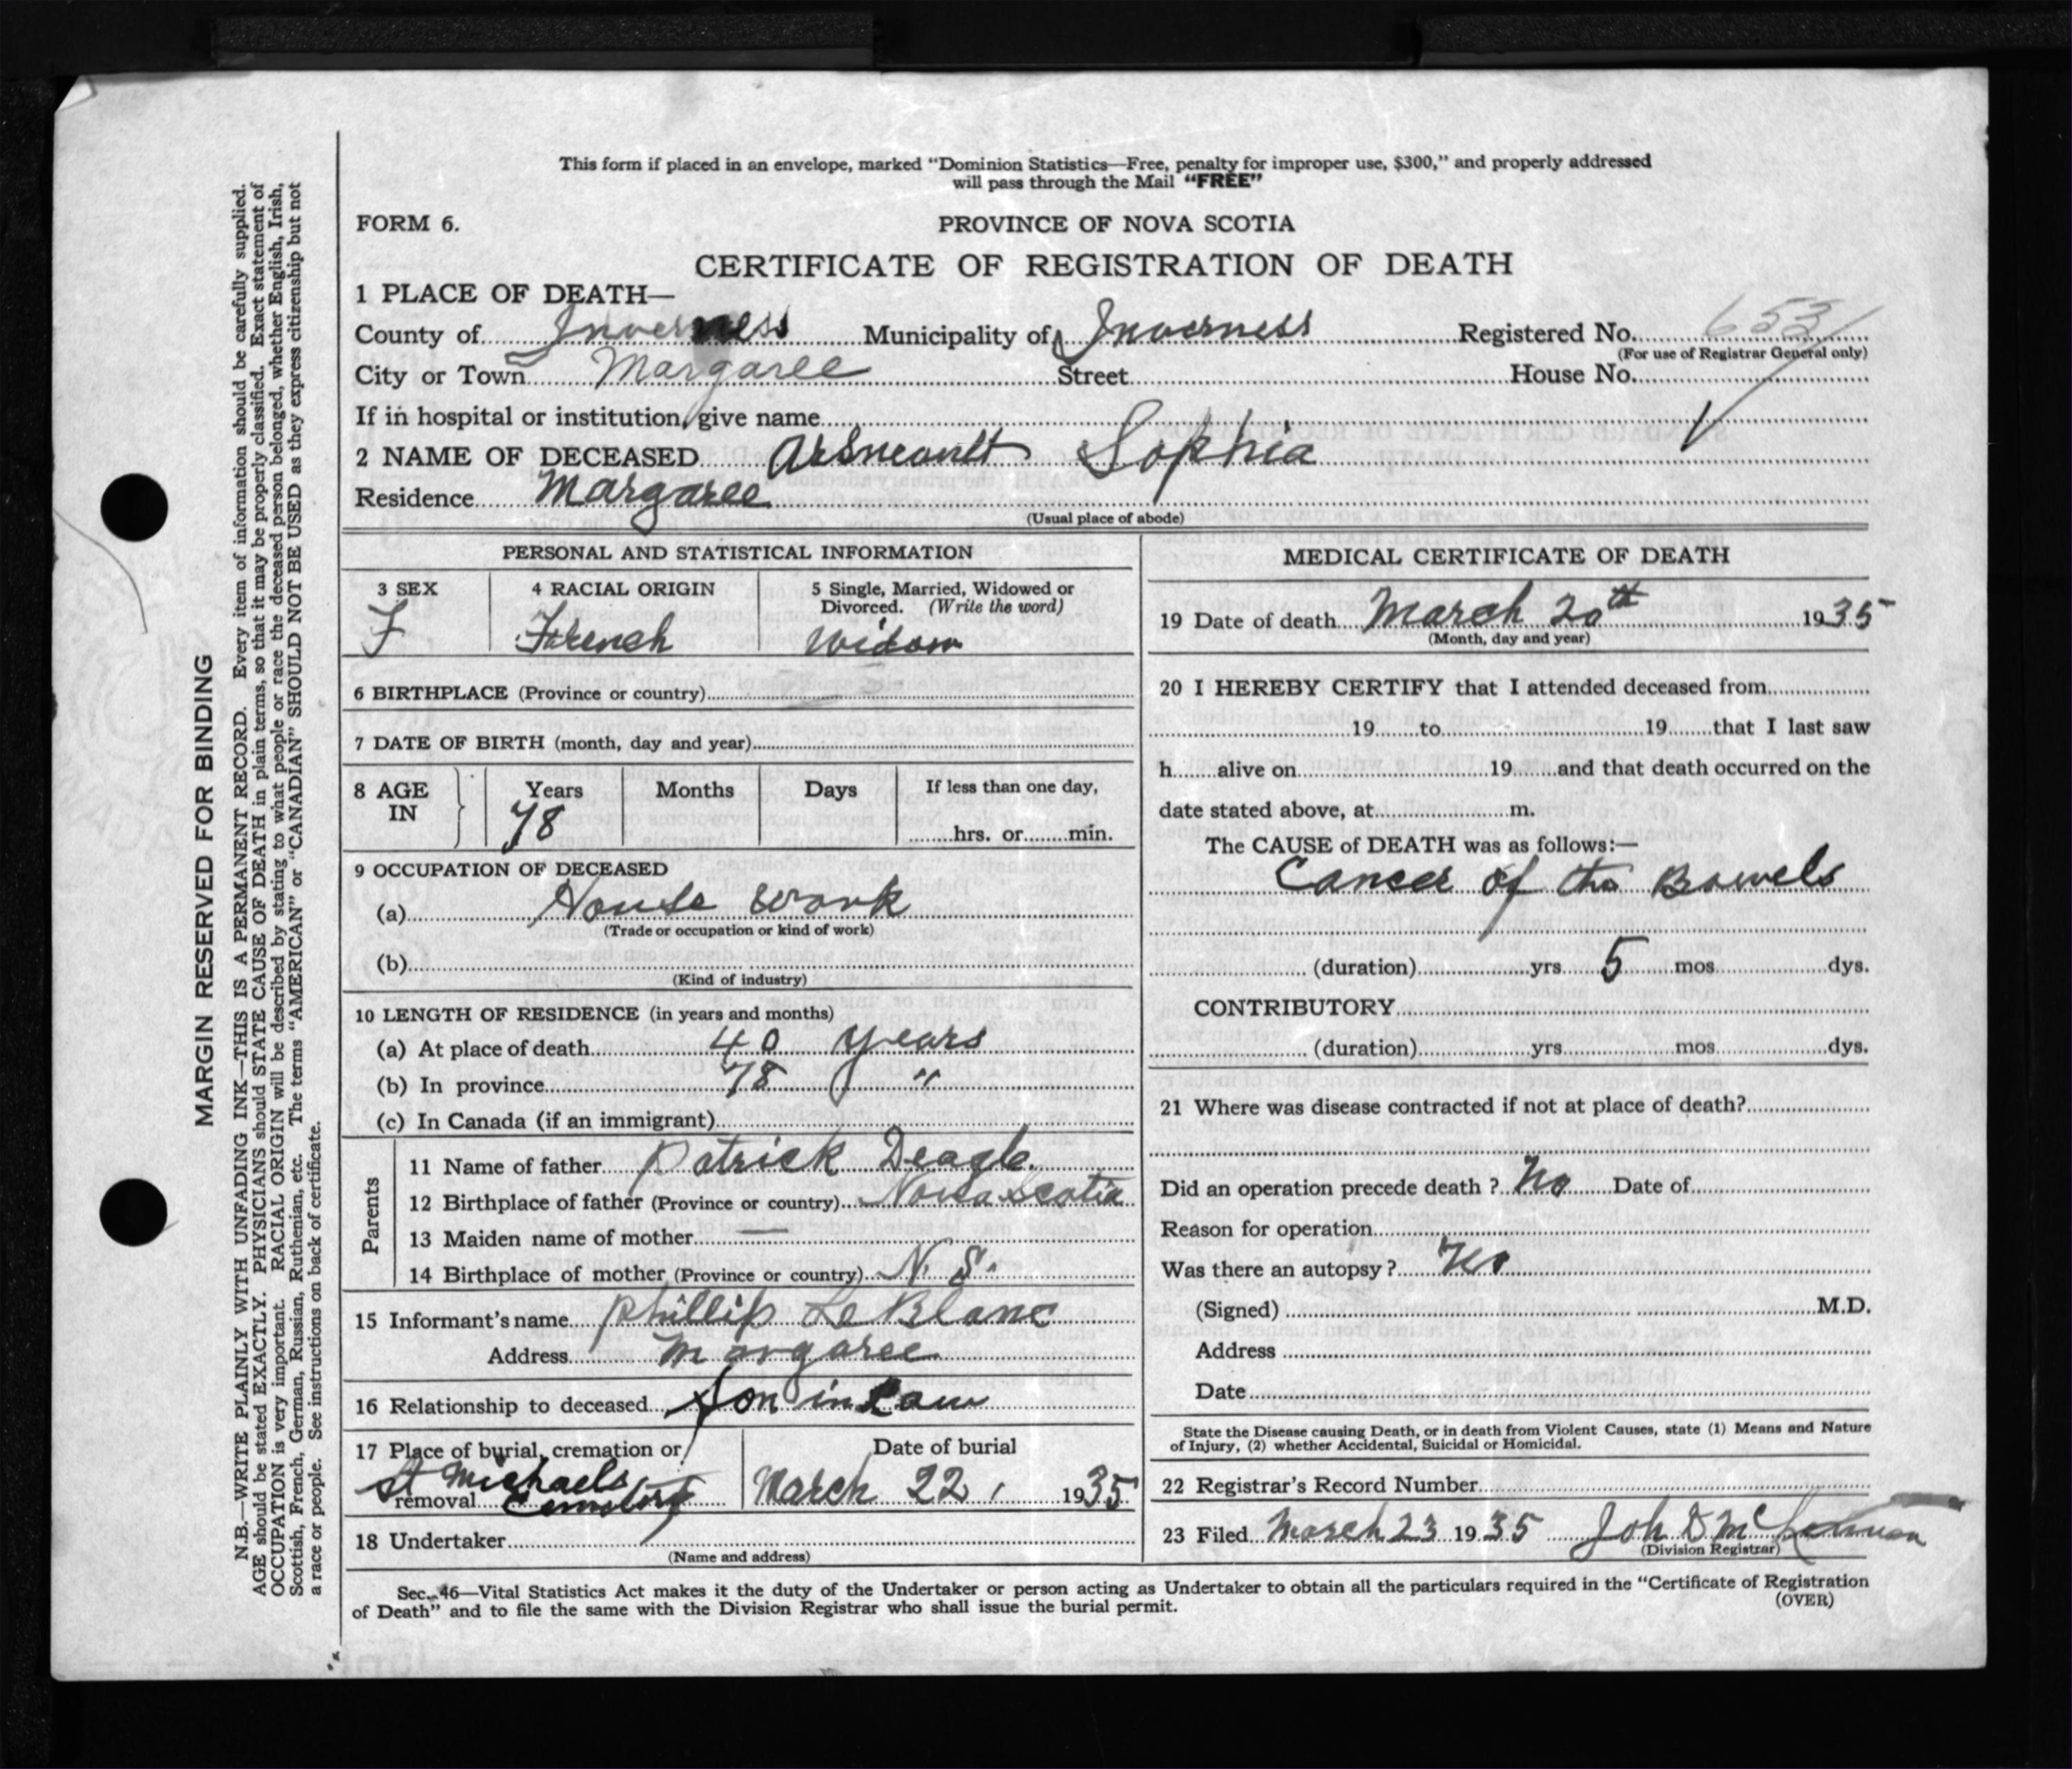 This form if placed in an envelope, marked “Dominion Statistics—Free, penalty for improper use, $300,” and properly addressed
will pass through the Mail “FREE”
FORM 6.
PROVINCE OF NOVA SCOTIA
CERTIFICATE OF REGISTRATION OF DEATH
1 PLACE OF DEATH—
County of Inverness Municipality of Inverness Registered No. 6531
(For use of Registrar General only)
City or Town Margaree Street House No.
If in hospital or institution, give name
2 NAME OF DECEASED Arsneault Sophia
Residence Margaree
(Usual place of abode)
PERSONAL AND STATISTICAL INFORMATION
3 SEX 4 RACIAL ORIGIN 5 Single, Married, Widowed or
Divorced. (Write the word)
F French Widow
6 BIRTHPLACE (Province or country)
7 DATE OF BIRTH (month, day and year)
8 AGE IN Years Months Days If less than one day,
78 hrs. or min.
9 OCCUPATION OF DECEASED
(a) House Work
(Trade or occupation or kind of work)
(b)
(Kind of industry)
10 LENGTH OF RESIDENCE (in years and months)
(a) At place of death 40 years
(b) In province 78 "
(c) In Canada (if an immigrant)
Parents
11 Name of father Patrick Deagle
12 Birthplace of father (Province or country) Nova Scotia
13 Maiden name of mother —
14 Birthplace of mother (Province or country) N. S.
15 Informant's name Phillip Le Blanc
Address Margaree
16 Relationship to deceased Son in Law
17 Place of burial, cremation or Date of burial
St Michaels
removal Cemetery March 22, 1935
18 Undertaker
(Name and address)
MEDICAL CERTIFICATE OF DEATH
19 Date of death March 20th 1935
(Month, day and year)
20 I HEREBY CERTIFY that I attended deceased from
19 to 19 that I last saw
h alive on 19 and that death occurred on the
date stated above, at m.
The CAUSE of DEATH was as follows:—
Cancer of the Bowels
(duration) yrs. 5 mos. dys.
CONTRIBUTORY
(duration) yrs. mos. dys.
21 Where was disease contracted if not at place of death?
Did an operation precede death? No Date of
Reason for operation
Was there an autopsy? No
(Signed) M.D.
Address
Date
State the Disease causing Death, or in death from Violent Causes, state (1) Means and Nature
of Injury, (2) whether Accidental, Suicidal or Homicidal.
22 Registrar's Record Number
23 Filed March 23 1935 Joh D Mc
(Division Registrar)
Sec. 46—Vital Statistics Act makes it the duty of the Undertaker or person acting as Undertaker to obtain all the particulars required in the “Certificate of Registration
of Death” and to file the same with the Division Registrar who shall issue the burial permit.
(OVER)
MARGIN RESERVED FOR BINDING
N.B.—WRITE PLAINLY WITH UNFADING INK—THIS IS A PERMANENT RECORD. Every item of information should be carefully supplied.
AGE should be stated EXACTLY. PHYSICIANS should STATE CAUSE OF DEATH in plain terms, so that it may be properly classified. Exact statement of
OCCUPATION is very important. RACIAL ORIGIN will be described by stating to what people or race the deceased person belonged, whether English, Irish,
Scottish, French, German, Russian, Ruthenian, etc. The terms “AMERICAN” or “CANADIAN” SHOULD NOT BE USED as they express citizenship but not
a race or people. See instructions on back of certificate.